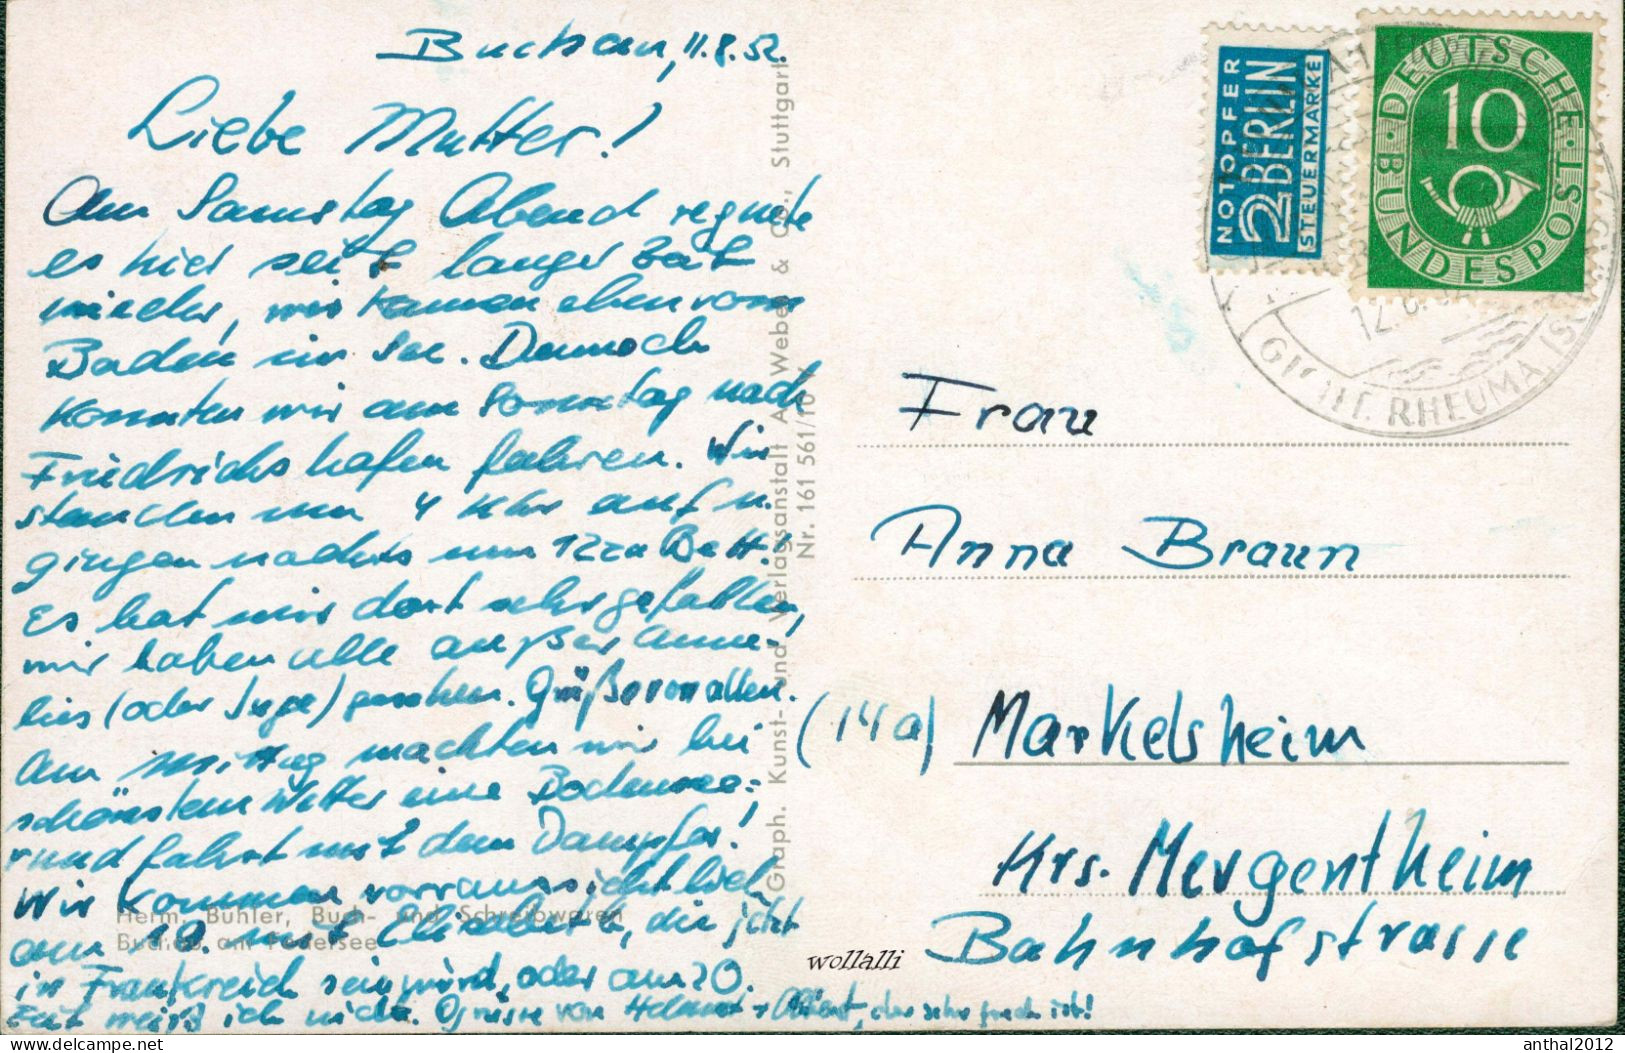 Buchau, 11.8.52.
Liebe Mutter!
Am Samstag Abend regnete
es hier seit langer Zeit
wieder, wir kamen eben vom
Baden im See. Dennoch
konnten wir am Sonntag nach
Friedrichshafen fahren. Wir
standen um 4 Uhr auf u.
gingen nachts um 12 zu Bett!
Es hat mir dort sehr gefallen,
wir haben alle außer Anne-
lies (oder Inge) gesehen. Grüße von allen.
Am Mittag machten wir bei
schönstem Wetter eine Bodensee-
rundfahrt mit dem Dampfer!
Wir kommen vorraussichtlich
am 19. mit Elisabeth, die jetzt
in Frankreich sein wird, oder am 20.
Zeit weiß ich nicht. Grüsse von Helmut + Albert, der sehr frech ist!
Herm. Bühler, Buch- und Schreibwaren
Buchau am Federsee
Graph. Kunst- und Verlagsanstalt A. Weber & Co., Stuttgart
Nr. 161 561/10
NOTOPFER
2 BERLIN
STEUERMARKE
DEUTSCHE BUNDESPOST
10
12.8.
RHEUMA
Frau
Anna Braun
(14a) Markelsheim
Krs. Mergentheim
Bahnhofstrasse
wollalli
delcampe.net
anthal2012